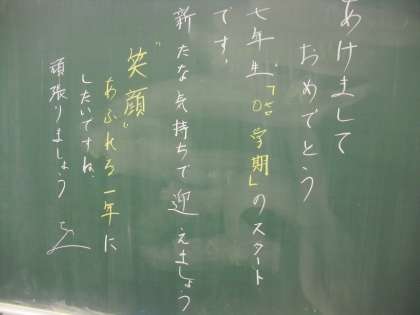 あけまして
おめでとう
七年生「0.5学期」のスタート
です。
新たな気持ちで迎えましょう
"笑顔"
あふれる一年に
したいですね。
頑張りましょう